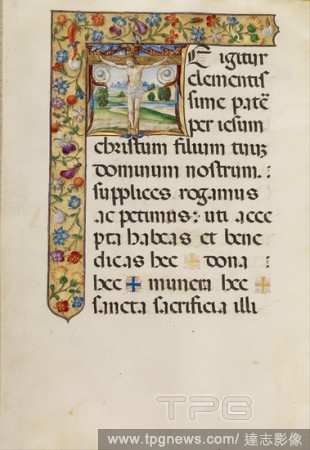 E igitur
clementis
sime patē
per iesum
christum filium tuuz
dominum nostrum.
supplices rogamus
ac petimus: uti acce
pta habeas et bene
dicas hec dona :
hec munera hec
sancta sacrificia illi
TPG
www.tpgnews.com/達志影像